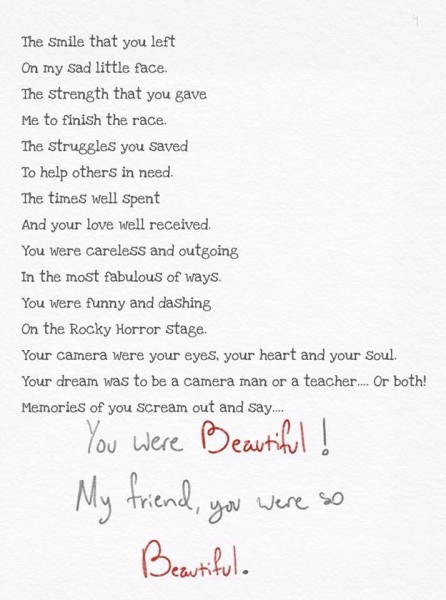 The smile that you left
On my sad little face.
The strength that you gave
Me to finish the race.
The struggles you saved
To help others in need.
The times well spent
And your love well received.
You were careless and outgoing
In the most fabulous of ways.
You were funny and dashing
On the Rocky Horror stage.
Your camera were your eyes, your heart and your soul.
Your dream was to be a camera man or a teacher.... Or both!
Memories of you scream out and say....
You were Beautiful!
My friend, you were so
Beautiful.